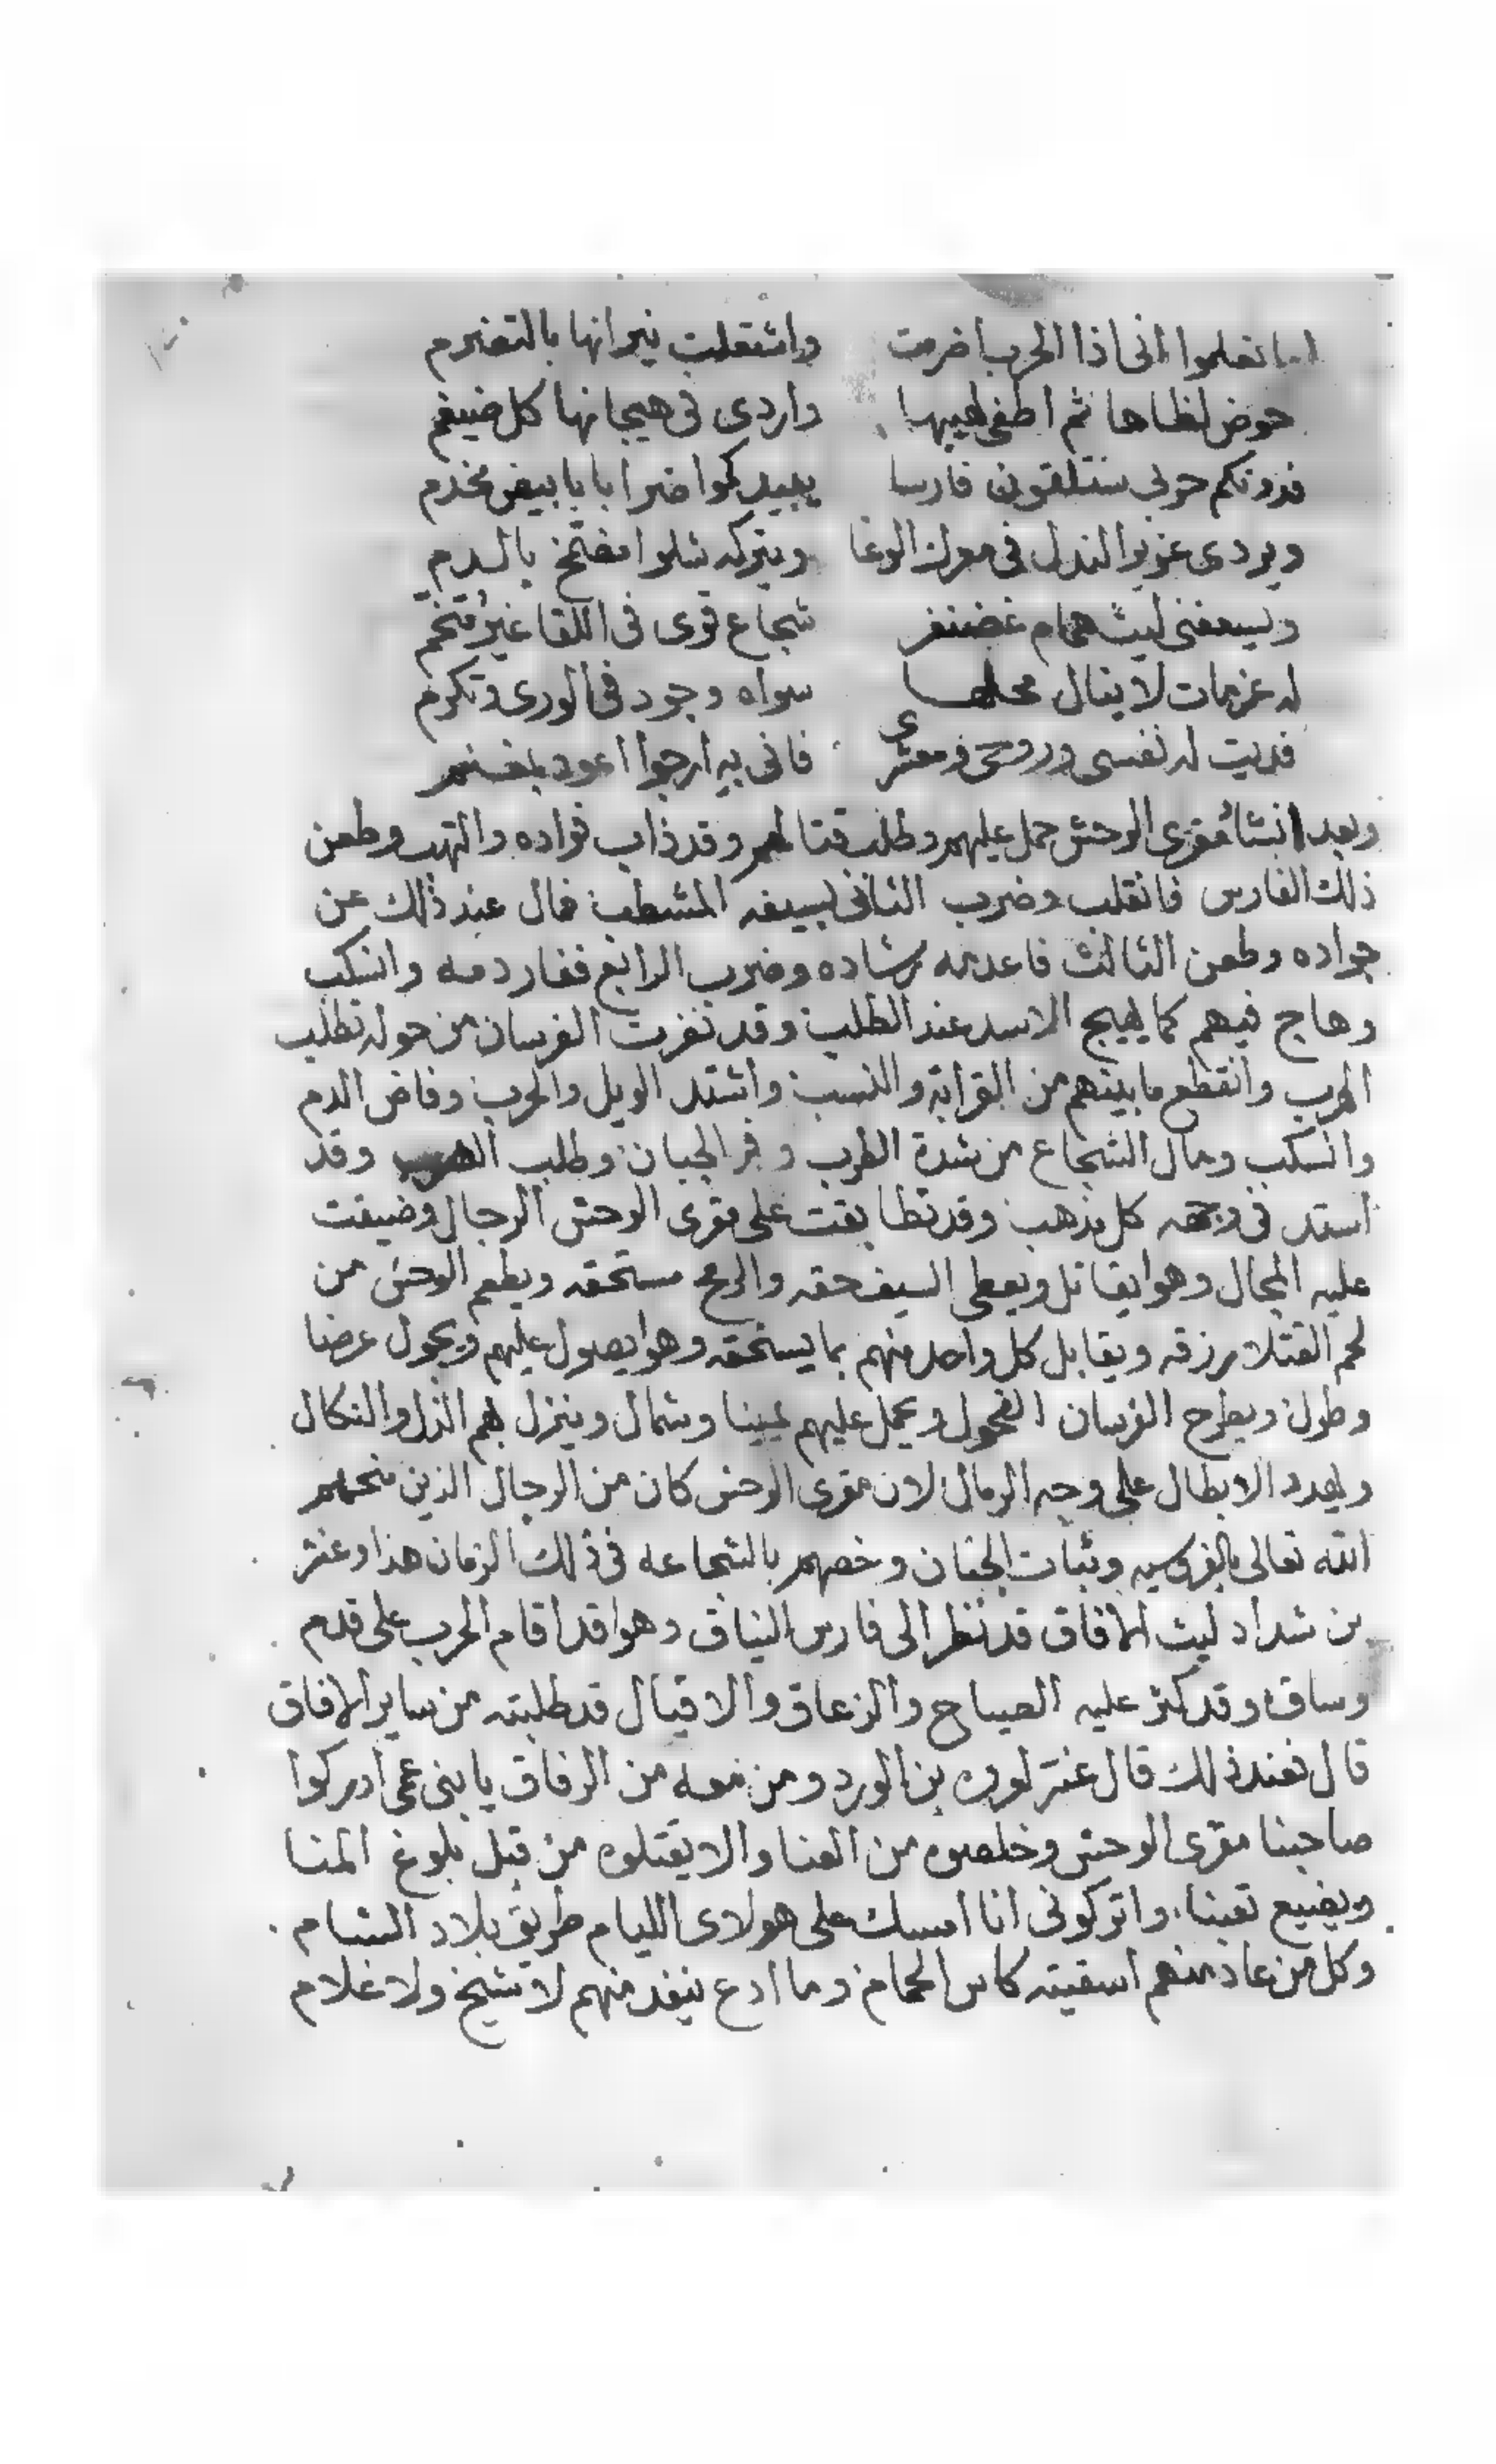 اما تعلموا انى اذا الحرب اضرمت واشتعلت نيرانها بالتضرم
خوض لظاها ثم اطفى لهيبها واردى فى هيجانها كل ضيغم
فدونكم حربى ستلقون فارسا يبيدكموا ضرابا بابيض مخدم
ويردى عزيز الندل فى معرك الوغا ويتركه شلوا مضمخ بالدم
ويسعفنى ليث همام غضنفر شجاع قوى فى اللقا غير
له عزمات لا ينال محلها سواه وجود فى الورى وتكرم
فديت له نفسى وروحى ومعشرى فانى به ارجوا اعود بمغنم
وبعد انشا مقرى الوحش حمل عليهم وطلب قتالهم وقد ذاب فواده والتهب وطعن
ذلك الفارس فانقلب وضرب الثانى بسيفه المشطب فمال عند ذلك عن
جواده وطعن الثالث فاعدمه رشاده وضرب الرابع ففار دمه وانسكب
وهاج فيهم كما يهيج الاسد عند الطلب وقد نفرت الفرسان من حوله تطلب
الهرب وانقطع ما بينهم من القرابة والنسب واشتد الويل والحرب وفاض الدم
وانسكب ومال الشجاع من شدة الطرب وفر الجبان وطلب الهرب وقد
استد فى وجهه كل مذهب وقد تطابقت على مقرى الوحش الرجال وضيقت
عليه المجال وهوا يقاتل ويعطى السيف حقه والرمح مستحقه ويطعم الوحش من
لحم القتلا رزقه ويقابل كل واحد منهم بما يستحقه وهوا يصول عليهم ويجول عرضا
وطول ويطرح الفرسان الفحول ويحمل عليهم يمينا وشمال وينزل بهم الذل والنكال
ويمدد الابطال على وجه الرمال لان مقرى الوحش كان من الرجال الذين منحهم
الله تعالى بالفروسيه وثبات الجنان وخصهم بالشجاعه فى ذلك الزمان هذا وعنتر
بن شداد ليث الافاق قد نظر الى فارس النياق وهوا قد اقام الحرب على قدم
وساق وقد كثر عليه الصياح والزعاق والاقيال قد طلبته من ساير الافاق
قال فعند ذلك قال عنتر لعروه بن الورد ومن معه من الرفاق يا بنى عمى ادركوا
صاحبنا مقرى الوحش وخلصوه من العنا والا يقتلوه من قبل بلوغ المنا
ويضيع تعبنا واتركونى انا امسك على هولاى الليام طريق بلاد الشام
وكل من عاد منهم اسقيته كاس الحمام وما ادع ينفد منهم لا شيخ ولا غلام